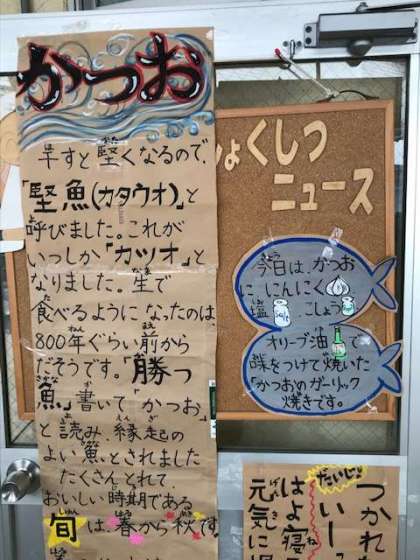 かつお
干すと堅くなるので、
「堅魚(カタウオ)」と
呼びました。これが
いつしか「カツオ」と
なりました。生で
食べるようになったのは
800年ぐらい前から
だそうです。「勝つ
魚」書いて「かつお」
と読み縁起の
よい魚とされました
たくさんとれて
おいしい時期である
旬は春から秋です
ょくしつ
ニュース
今日は、かつお
に、にんにく
塩、こしょう
オリーブ油で
味をつけて焼いた
「かつおのガーリック
焼きです。
つかれ
たいじ
いー
はよ寝
元気に